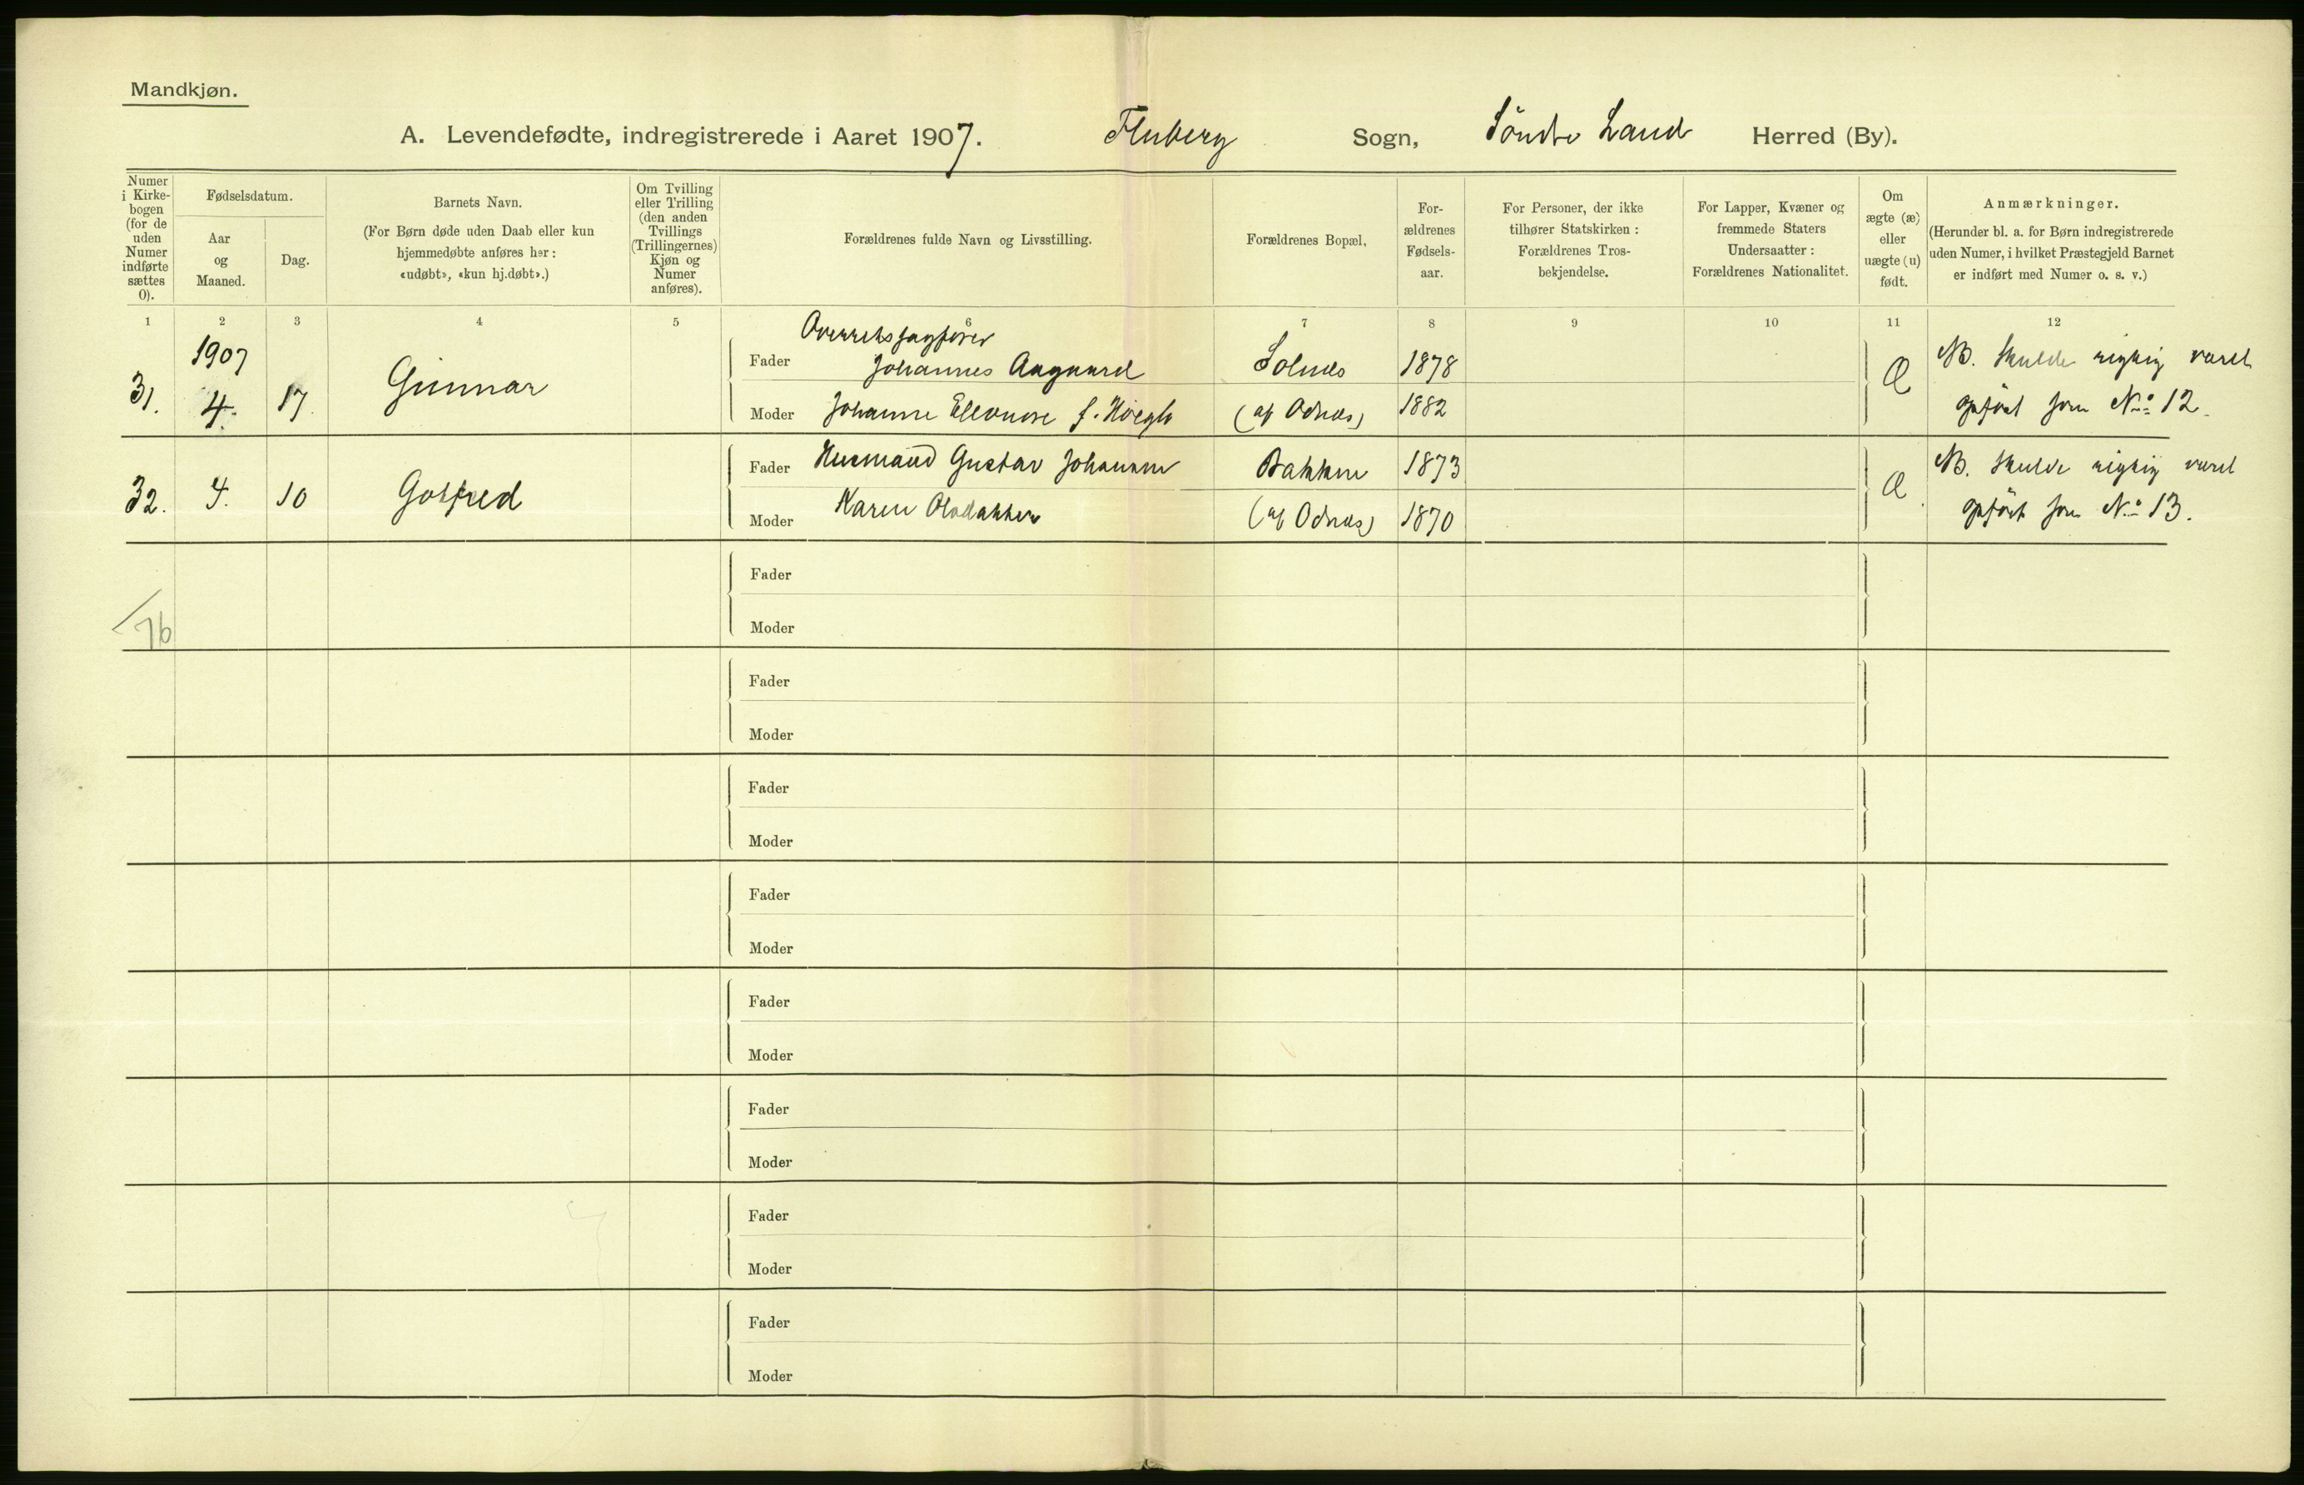 Mandkjøn.
A. Levendefødte, indregistrerede i Aaret 1907. Fluberg Sogn, Søndre Land Herred (By).
Numer i Kirke-bogen (for de uden Numer indførte sættes 0).
Fødselsdatum.
Aar og Maaned.
Dag.
Barnets Navn.
(For Børn døde uden Daab eller kun
hjemmedøbte anføres her:
«udøbt», «kun hj.døbt».)
Om Tvilling
eller Trilling
(den anden
Tvillings
(Trillingernes)
Kjøn og
Numer
anføres).
Forældrenes fulde Navn og Livsstilling.
Forældrenes Bopæl,
For-
ældrenes
Fødsels-
aar.
For Personer, der ikke
tilhører Statskirken:
Forældrenes Tros-
bekjendelse.
For Lapper, Kvæner og
fremmede Staters
Undersaatter:
Forældrenes Nationalitet.
Om
ægte (æ)
eller
uægte (u)
født.
Anmærkninger.
(Herunder bl. a. for Børn indregistrerede
uden Numer, i hvilket Præstegjeld Barnet
er indført med Numer o. s. v.)
1 2 3 4 5 6 7 8 9 10 11 12
1907
31. 4. 17. Gunnar
Overretssagfører
Fader Johannes Aagaard Solnes 1878
Moder Johanne Eleonore f. Høegh (af Odnæs) 1882
Æ
NB. Skulde rigtig været
opført som No 12.
32. 4. 10 Gotfred
Fader Husmand Gustav Johansen Bakken 1873
Moder Karen (af Odnæs) 1870
Æ
NB. Skulde rigtig været
opført som No 13.
Fader
/76
Moder
Fader
Moder
Fader
Moder
Fader
Moder
Fader
Moder
Fader
Moder
Fader
Moder
Fader
Moder